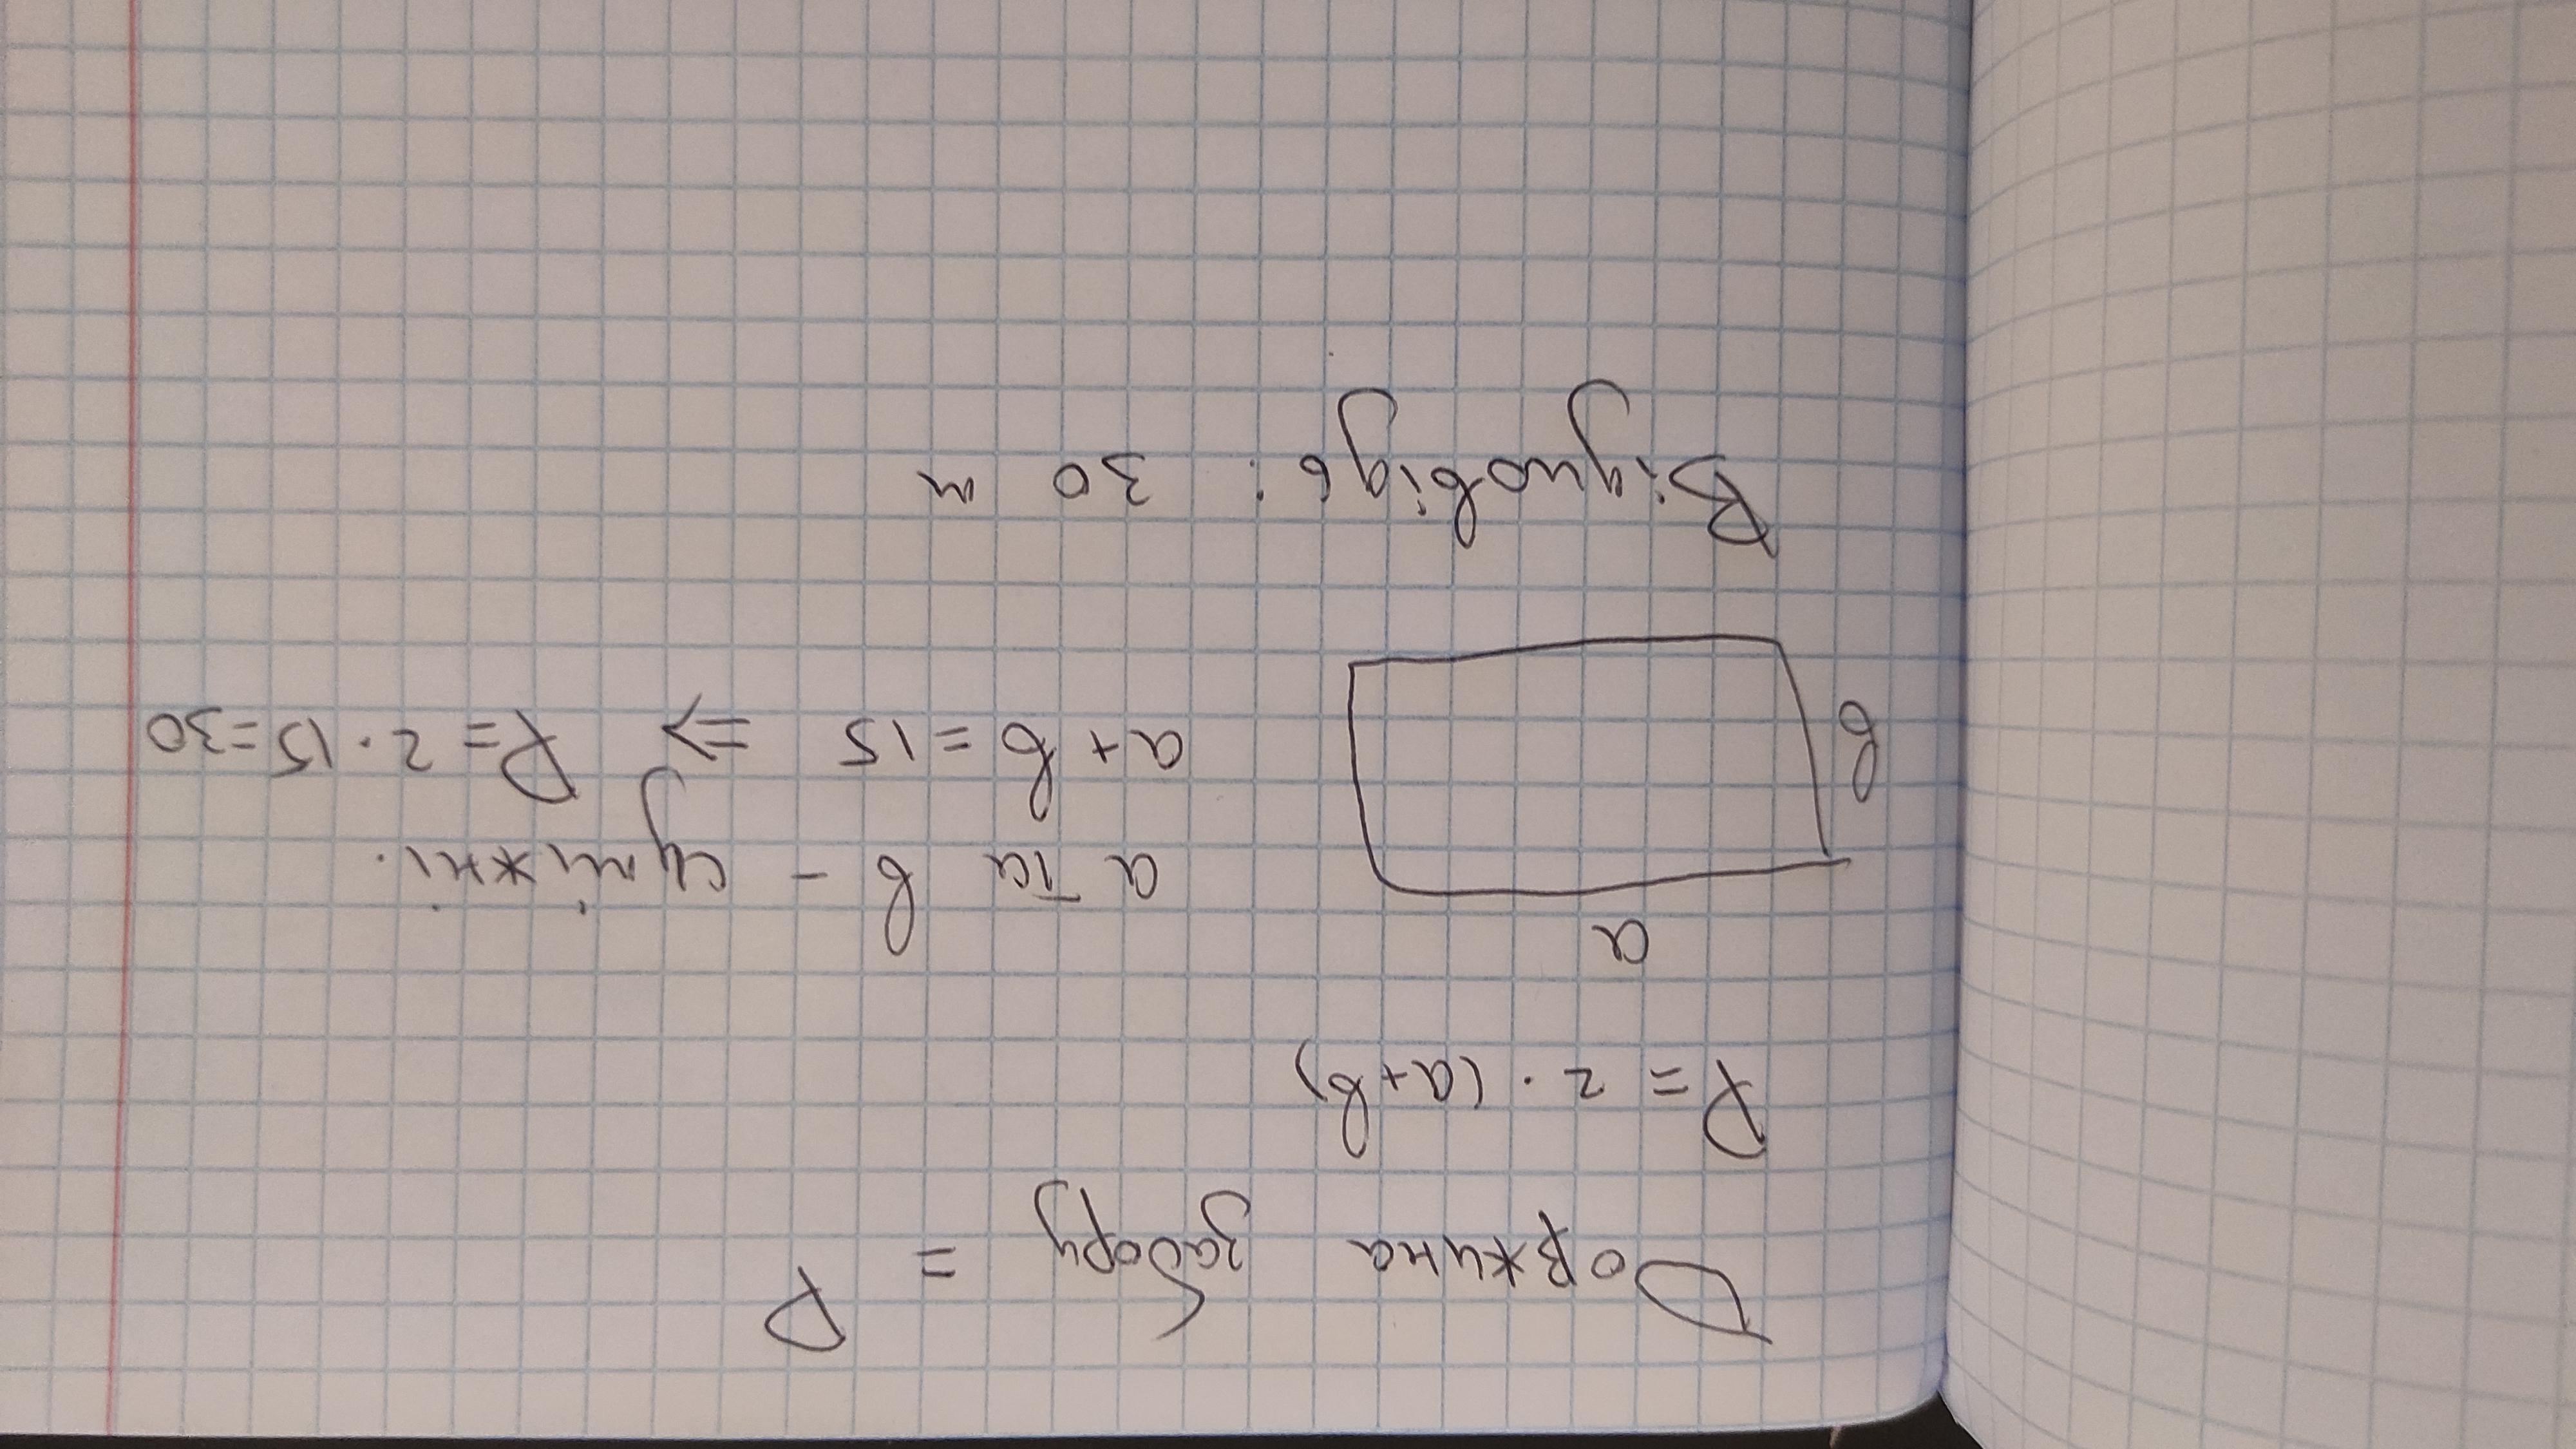 Довжина забору = P
P = 2 · (a+b)
a
b
a та b - суміжні.
a + b = 15 => P = 2 · 15 = 30
Відповідь: 30 м